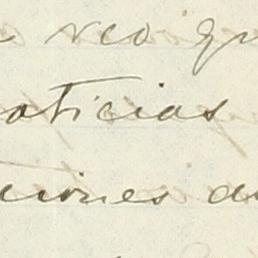 veo qu
oticias
ciones de